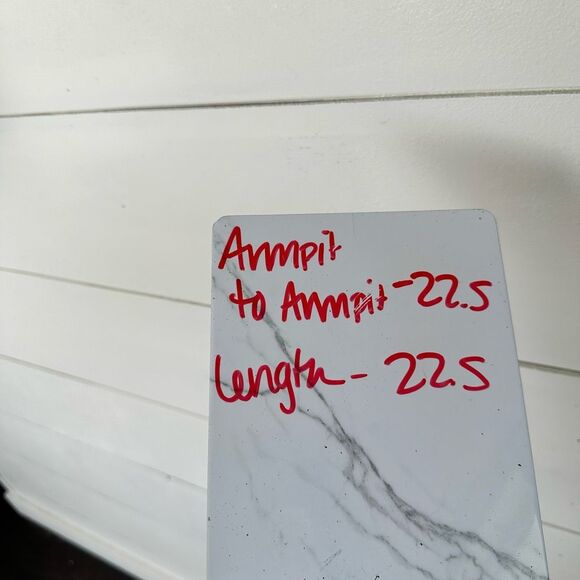 Armpit
to Armpit - 22.5
length - 22.5